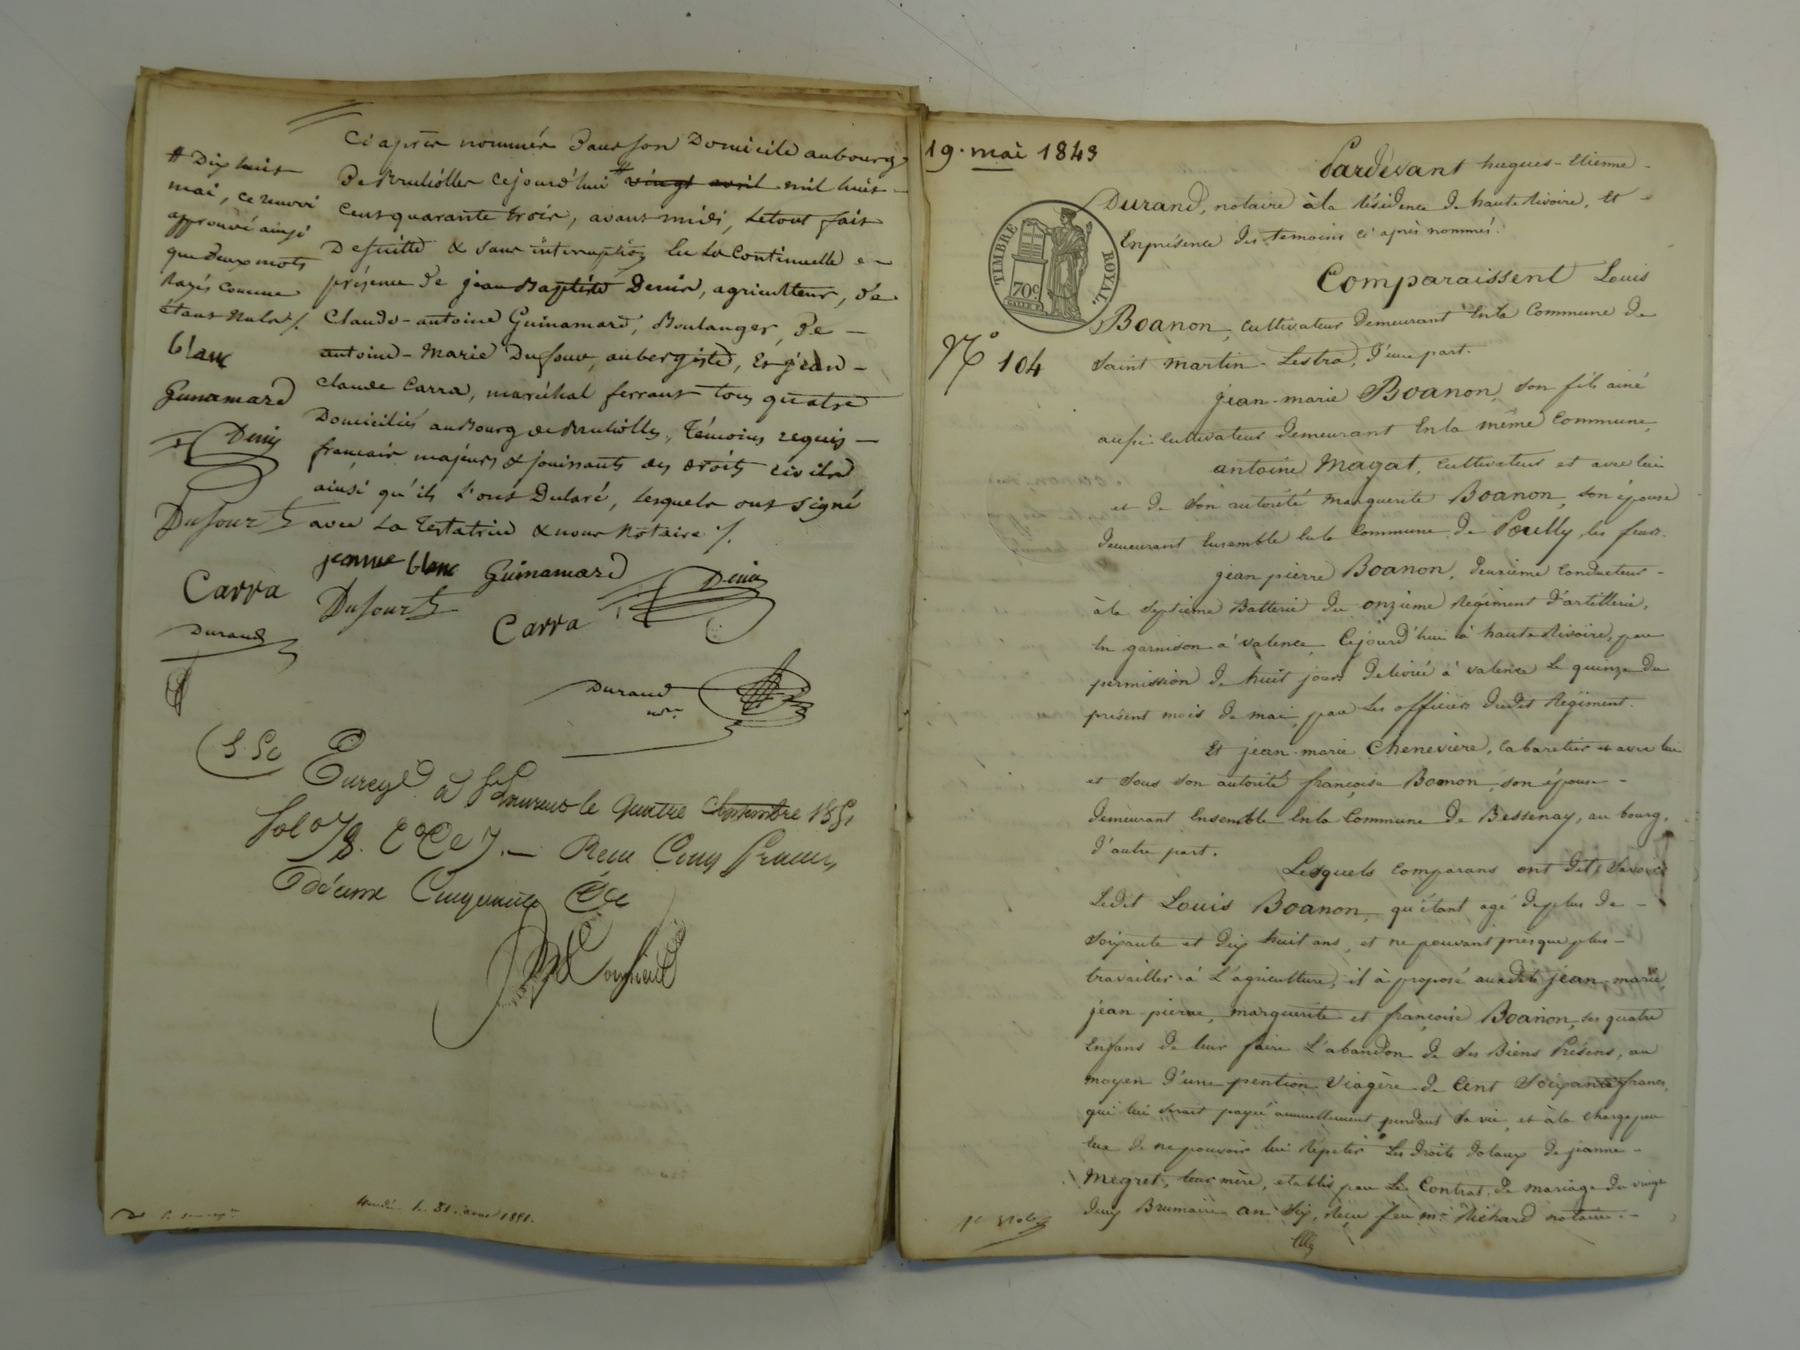 Ci après nommés Dans son Domicile au bourg
De Brullioller cejourd'hui # vingt avril mil huit
Cent quarante trois, avant midi, Le tout fait
De suitte & sans interruption Lu Le Continuelle
présence de jean Baptiste Denis, agriculteur, De
Claude-antoine Guinamard, Boulanger, De
antoine-Marie Dufour, aubergiste, Et jean
Claude Carra, maréchal ferrant tous quatre
Domiciliés au Bourg de Brullioller, Témoins requis
français majeurs & jouissants des droits civils
ainsi qu'ils L'ont Déclaré, lesquels ont signé
avec La Testatrice & nous Notaire /.
# Dix huit
mai, ce renvoi
approuvé ainsi
que Deux mots
Rayés Comme
étant Nuls /.
blanc
Gunamard
Denis
Dufour
Carra
Durand
jeanne blanc Guinamard Denis
Dufour Carra
Durand
Nre
Enregé à St Laurent le quatre Septembre 1851
fol 78. Reçu Cinq francs
Décime Cinquante Ces
19. mai 1843
TIMBRE ROYAL
70c
No 104
Pardevant hugues-Etienne
Durand, notaire à la Résidence De haute Rivoire, Et
En présence Des témoins ci après nommés.
Comparaissent Louis
Boanon, Cultivateur Demeurant En la Commune De
Saint Martin-Lestra, D'une part.
jean-marie Boanon, son fils ainé
aussi Cultivateur Demeurant En la même Commune,
antoine Magat, Cultivateur et avec lui
et De Son autorité Marguerite Boanon, son épouse
Demeurant Ensemble En la Commune De Pouilly les feurs.
jean pierre Boanon, Deuxième Conducteur
à la Septième Batterie Du onzième Régiment D'artillerie,
En garnison à Valence, Cejourd'hui à haute Rivoire, par
permission De huit jours Delivrée à Valence Le quinze Du
présent mois De mai, par Les officiers Dudit Régiment.
Et jean-marie Chenevière, Cabaretier et avec lui
et Sous Son autorité françoise Boanon, son épouse
Demeurant Ensemble En la Commune De Bessenay, au bourg,
D'autre part.
Lesquels Comparans ont Dit, Savoir
Ledit Louis Boanon, qu'étant agé De plus De
Soixante et Dix huit ans, et ne pouvant presque plus
travailler à L'agriculture, il à proposé auxdits jean-marie,
jean-pierre, marguerite et françoise Boanon, ses quatre
Enfans De leur faire L'abandon De Ses Biens Présens, au
moyen D'une pention Viagère De Cent Soixante francs,
qui lui Serait payée annuellement pendant Sa vie, et à la Charge par
Eux De ne pouvoir lui Répéter Les Droits Dotaux De jeanne
Megret, leur mère, etablis par Le Contrat De Mariage Du vingt
Deux Brumaire an Six, Reçu feu me Richard notaire.